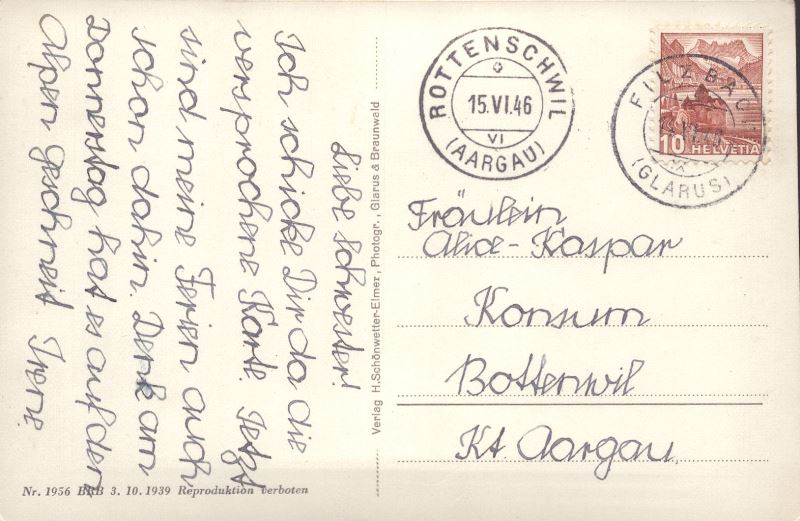 Liebe Schwester!
Ich schicke Dir da die
versprochene Karte. Jetzt
sind meine Ferien auch
schon dahin. Denk am
Donnerstag hat es auf den
Alpen geschneit. Irene.
Verlag H. Schönwetter-Elmer, Photogr., Glarus & Braunwald
Nr. 1956 BRB 3. 10. 1939 Reproduktion verboten
ROTTENSCHWIL
15.VI.46
VI
(AARGAU)
FILZBACH
(GLARUS)
10 HELVETIA
Fräulein
Alice Kaspar
Konsum
Bottenwil
Kt. Aargau